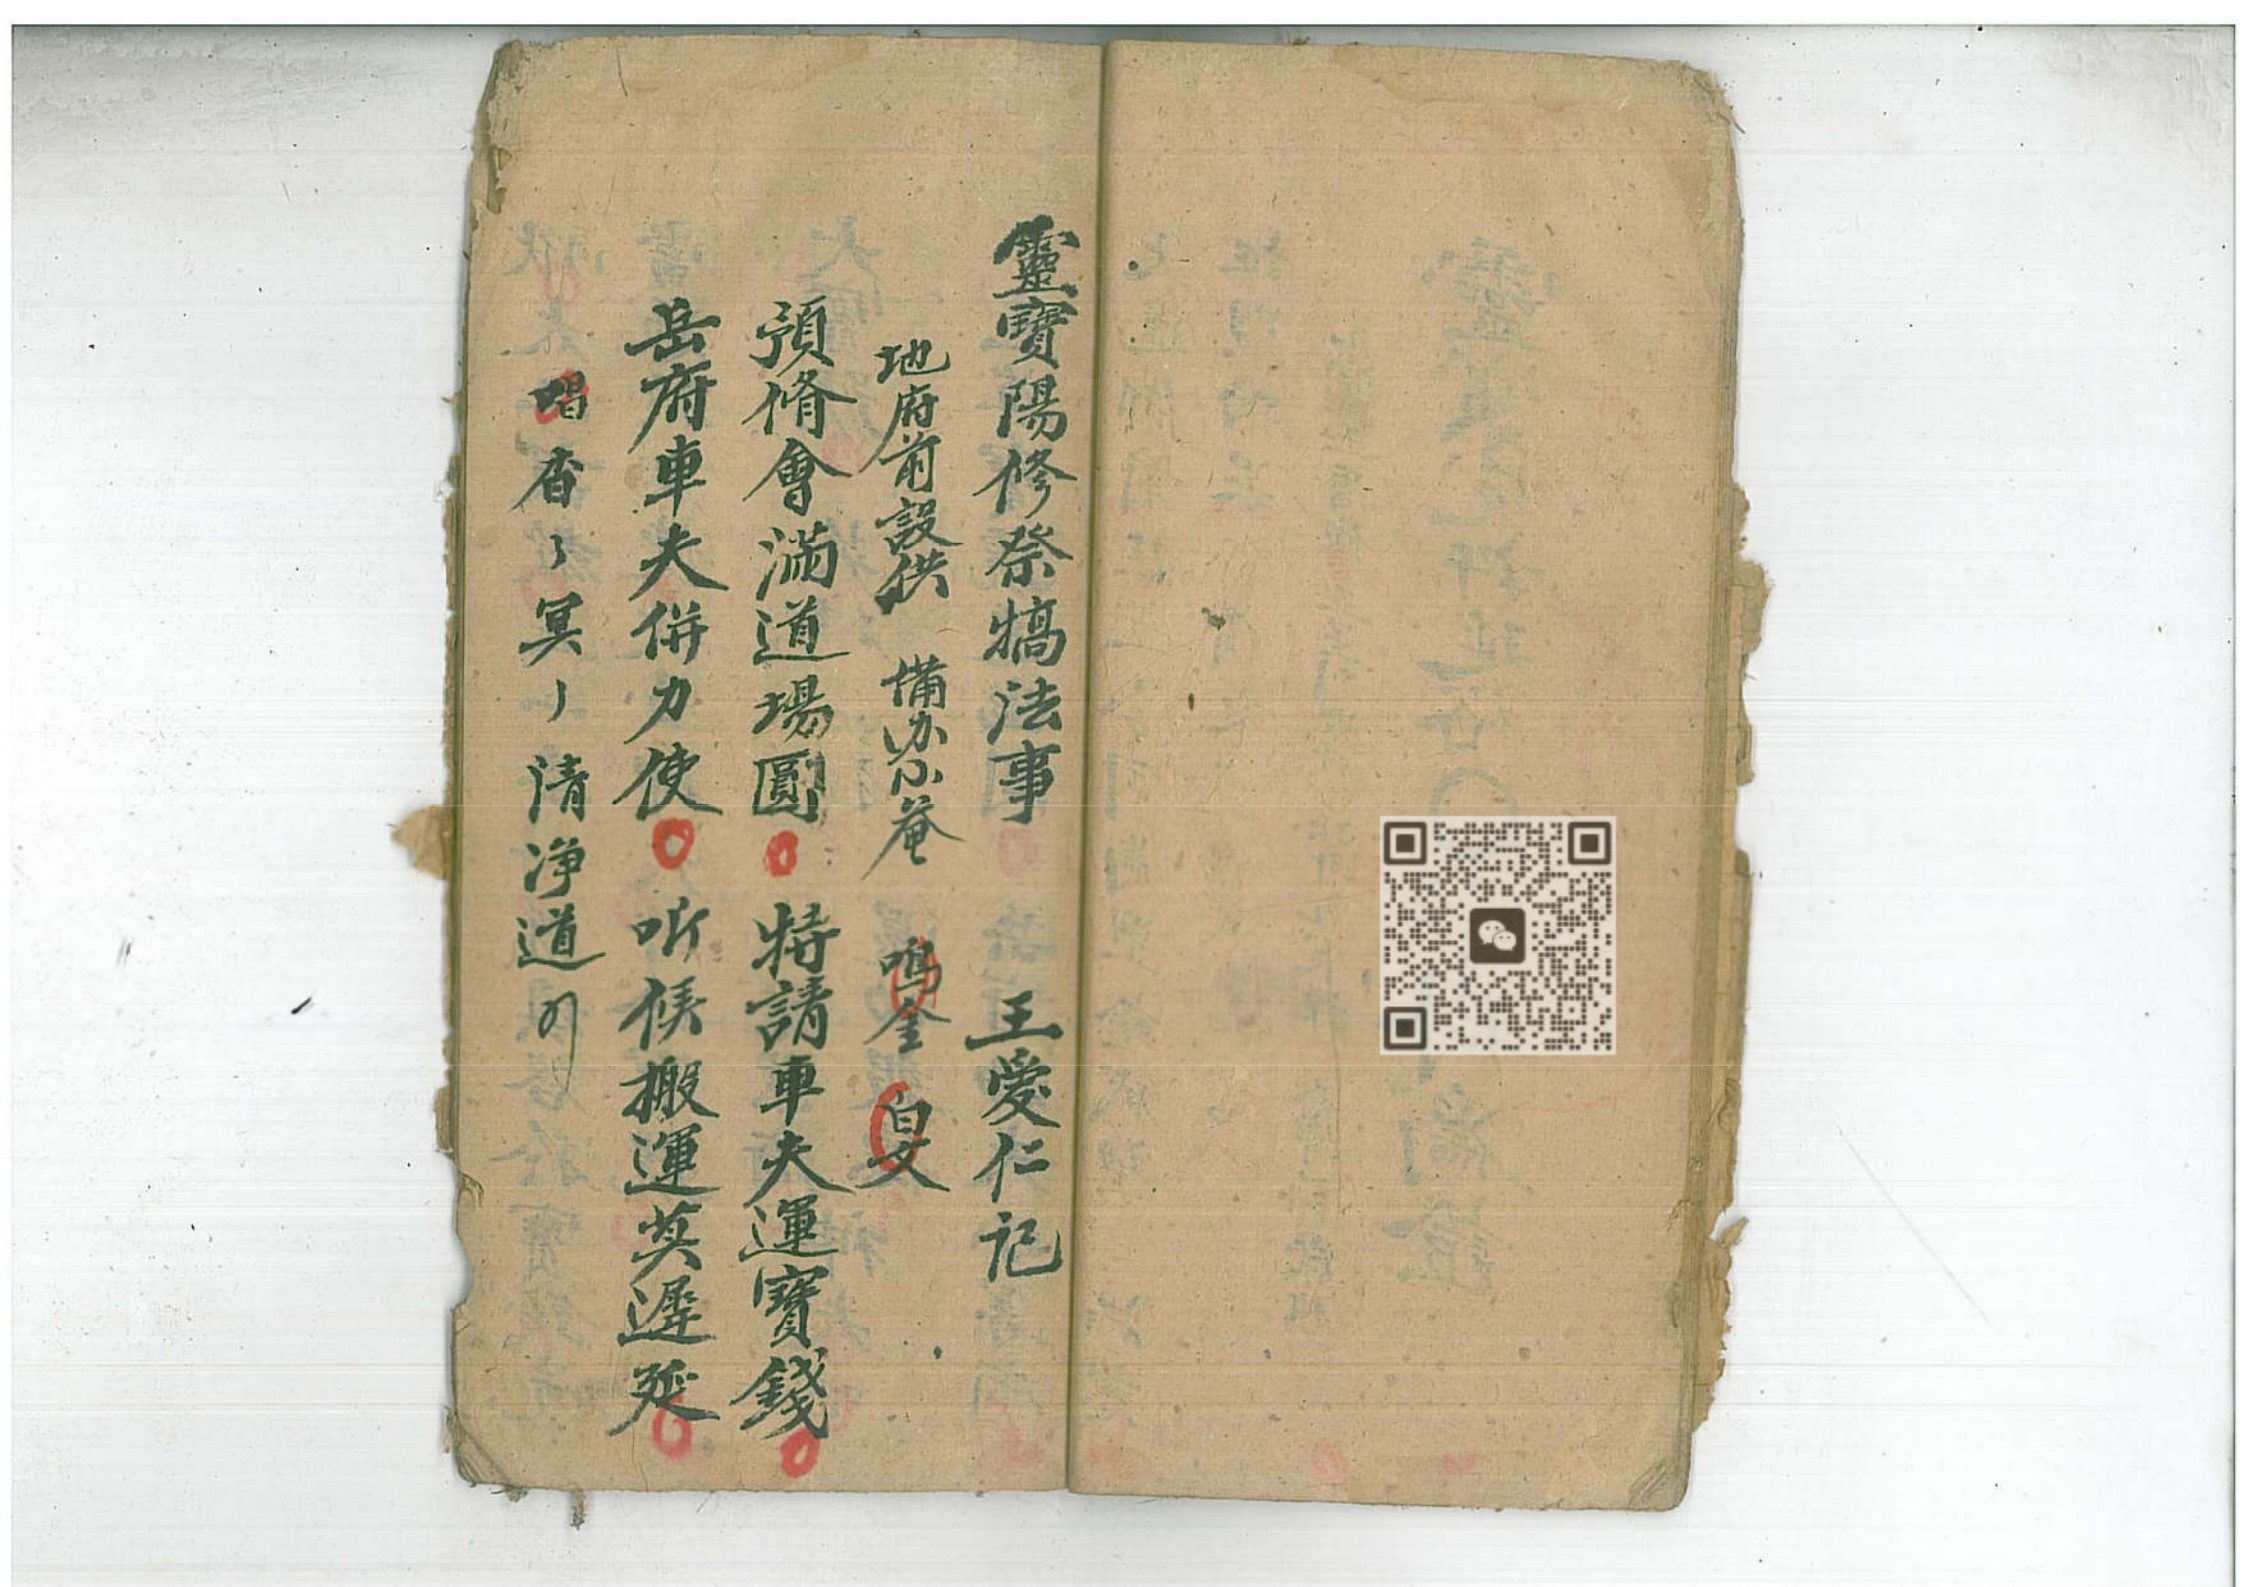 靈寶陽修祭犒法事 王愛仁記
地府前設供 備办小菴 鳴金 白文
預脩會滿道場圓 特請車夫運寶錢
岳府車夫併力使 听候搬運莫遲延
唱 杳〻冥〻清净道